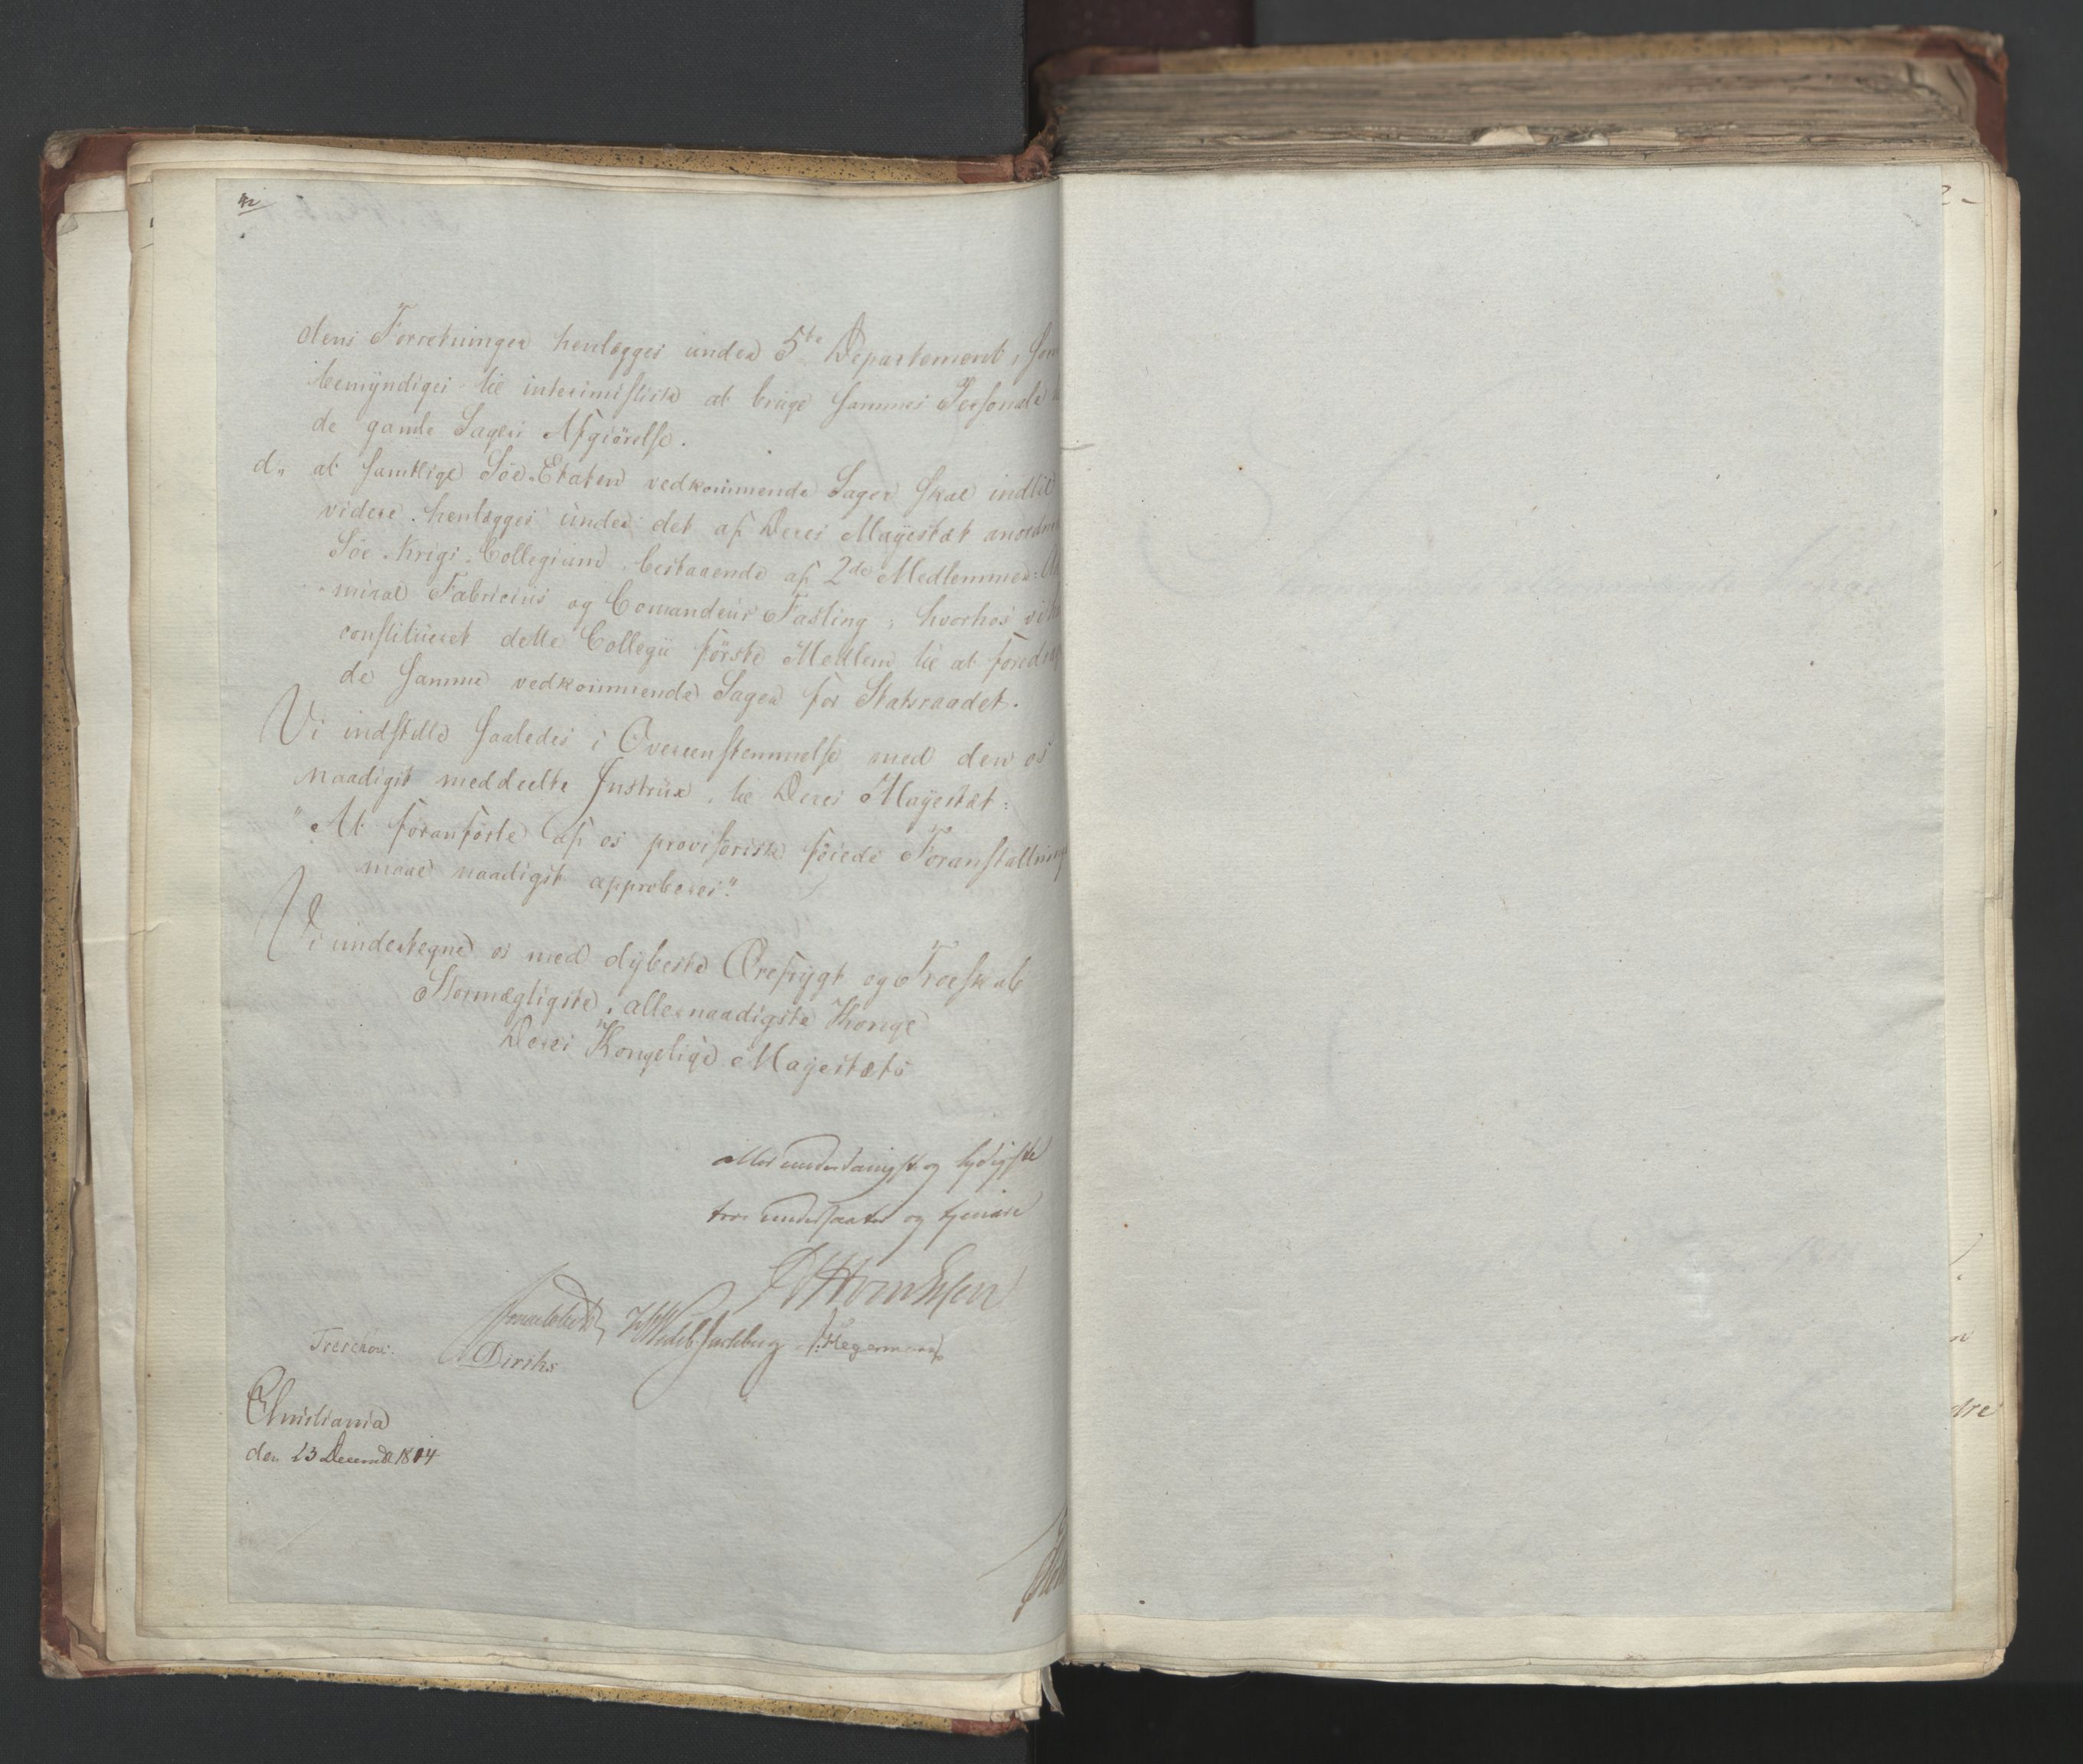 dens Forretninger henlægges under 5te Departement, som
bemÿndiges til interimistisk at bruge sammes Personale
de gamle Sagers Afgiörelse.
d„ at samtlige Söe-Etaten vedkommende Sager skal indtil
videre henlægges under det af Deres Mayestæt anordn
Söe-Krigs-Collegium bestaaende af 2de Medlemmer:
miral Fabricius og Comandeur Fasting; hvorhos vi
constitueret dette Collegii förste Medlem til at foredra
de samme vedkommende Sager for Statsraadet.
Vi indstille saaledes i Overeenstemmelse med den os
naadigst meddeelte Instrux, til Deres Mayestæt:
"At foranförte af os provisorisk föiede Foranstaltning
maae naadigst approberes."
Vi undertegne os med dÿbeste Ærefrÿgt og Troeskab
Stormægtigste, allernaadigste Konge
Deres Kongelige Mayestæts
allerunderdanigste og lydigste
troe undersaatter og tjenere
Sommerhielm Wedel-Jarlsberg Hegermann
Treschow. Diriks
Christiania
den 23 Decembr 1814